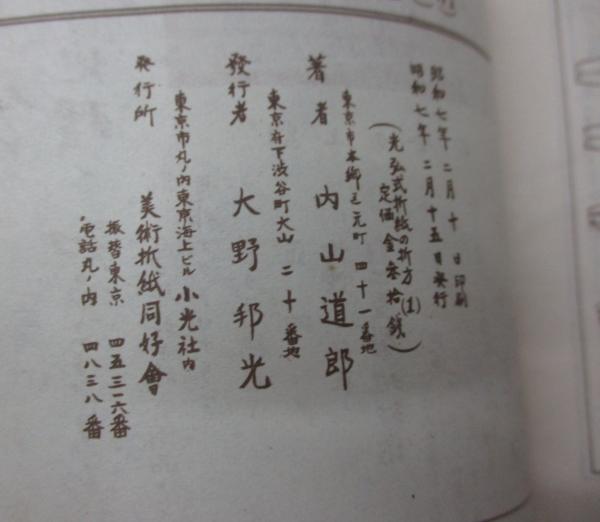 昭和七年二月十日印刷
昭和七年二月十五日発行
(光弘式折紙の折方(1)
定価金参拾銭)
東京市本郷区元町四十一番地
著者 内山道郎
東京府下渋谷町大山二十番地
發行者 大野邦光
東京市丸ノ内東京海上ビル小光社内
発行所 美術折紙同好會
振替東京 四五三一六番
電話丸ノ内 四八三八番